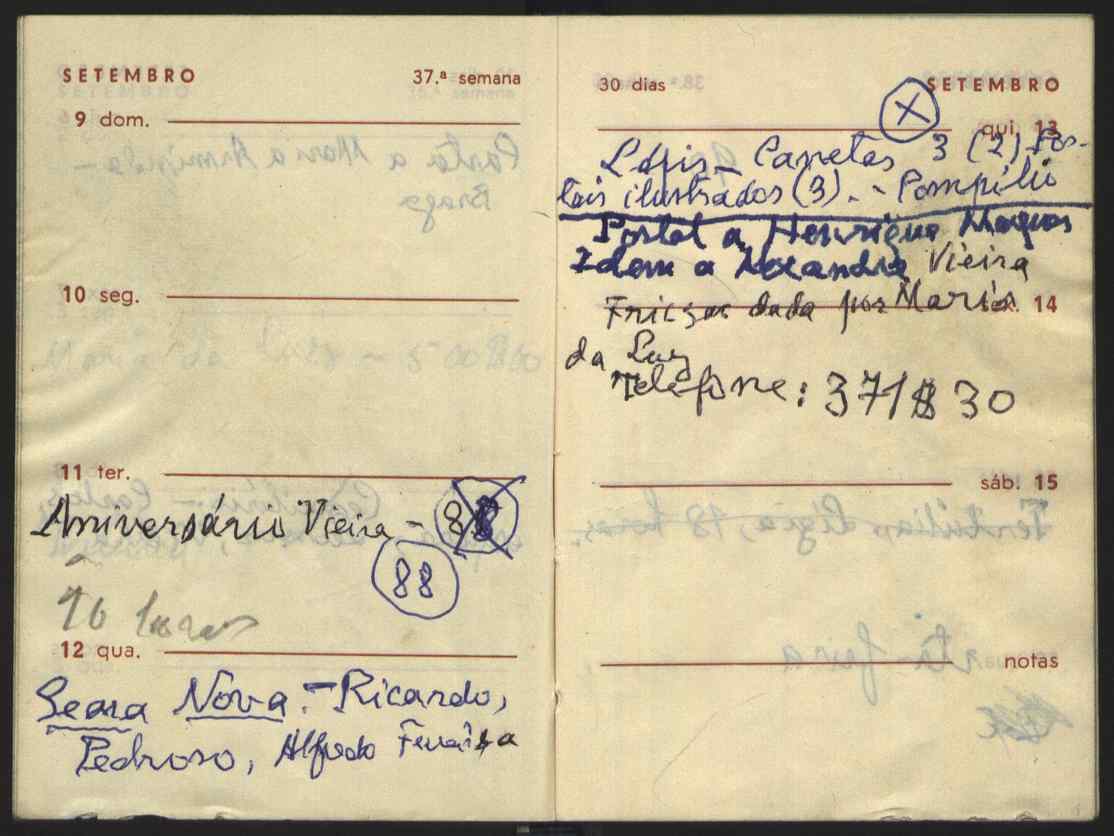 SETEMBRO 37.ª semana
9 dom.
10 seg.
11 ter.
Aniversário Vieira - 88
88
16 horas
12 qua.
Seara Nova: - Ricardo,
Pedroso, Alfredo Ferreira
30 dias SETEMBRO
X
qui. 13
Lápis - Canetas 3 (2) Pos-
tais ilustrados (3). - Pompílio
Postal a Henrique
Idem a Alexandre Vieira
14
dada por Maria
da Luz
Telefone: 371830
sáb. 15
notas